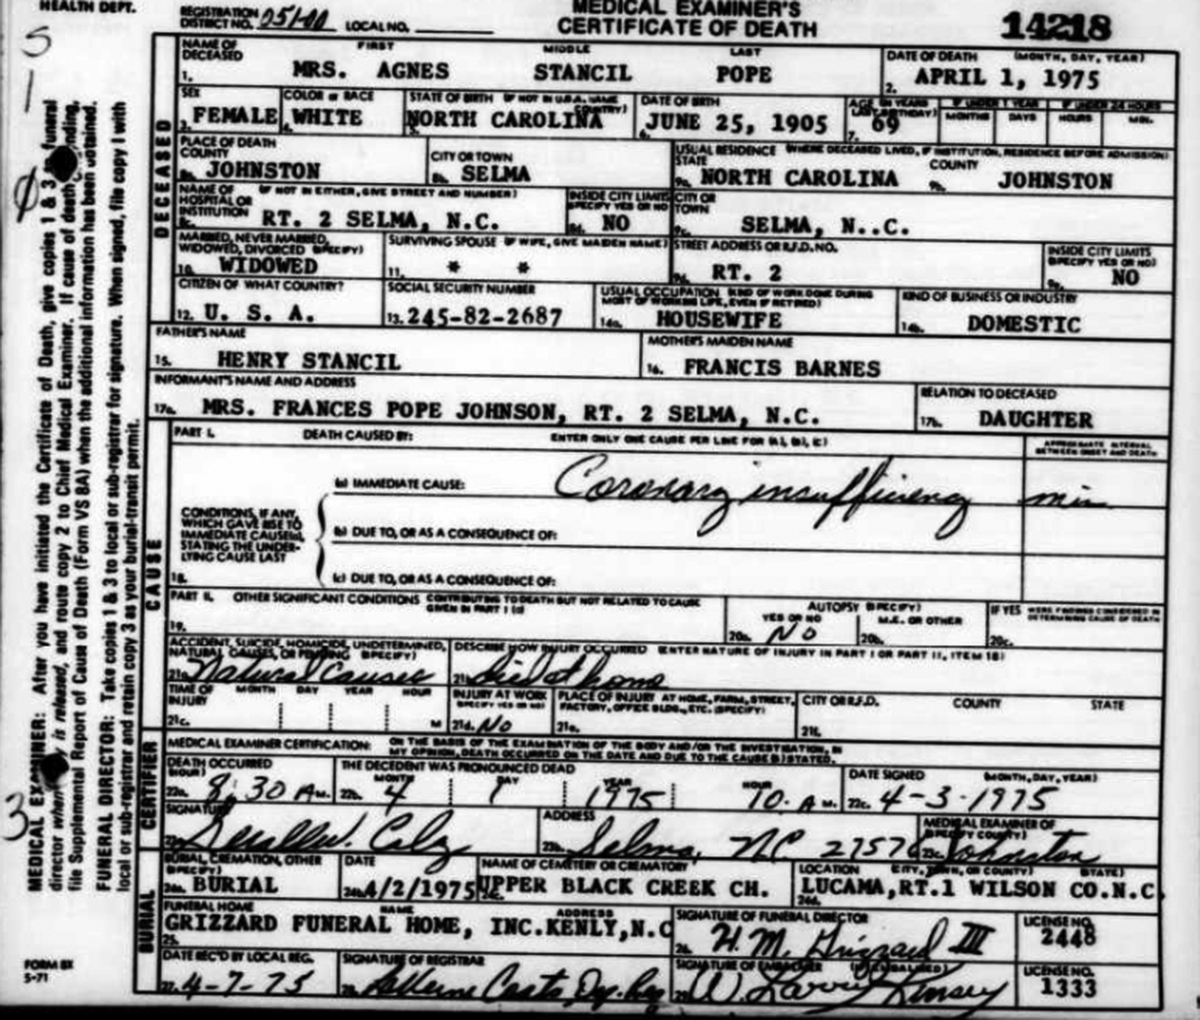 HEALTH DEPT.
REGISTRATION DISTRICT NO. 051-00 LOCAL NO.
MEDICAL EXAMINER'S
CERTIFICATE OF DEATH
14218
5
1
3
MEDICAL EXAMINER: After you have initiated the Certificate of Death, give copies 1 & 3 to funeral
director when body is released, and route copy 2 to Chief Medical Examiner. If cause of death pending,
file Supplemental Report of Cause of Death (Form VS 8A) when the additional information has been obtained.
FUNERAL DIRECTOR: Take copies 1 & 3 to local or sub-registrar for signature. When signed, file copy 1 with
local or sub-registrar and retain copy 3 as your burial-transit permit.
DECEASED
NAME OF DECEASED FIRST MIDDLE LAST
1. MRS. AGNES STANCIL POPE
DATE OF DEATH (MONTH, DAY, YEAR)
2. APRIL 1, 1975
SEX
3. FEMALE
COLOR OR RACE
4. WHITE
STATE OF BIRTH (IF NOT IN U.S.A. NAME COUNTRY)
5. NORTH CAROLINA
DATE OF BIRTH
6. JUNE 25, 1905
AGE IN YEARS LAST BIRTHDAY)
7. 69
IF UNDER 1 YEAR
MONTHS DAYS
IF UNDER 24 HOURS
HOURS MIN.
PLACE OF DEATH
COUNTY
8a. JOHNSTON
CITY OR TOWN
8b. SELMA
USUAL RESIDENCE (WHERE DECEASED LIVED, IF INSTITUTION, RESIDENCE BEFORE ADMISSION)
STATE COUNTY
9a. NORTH CAROLINA 9b. JOHNSTON
NAME OF HOSPITAL OR INSTITUTION (IF NOT IN EITHER, GIVE STREET AND NUMBER)
8c. RT. 2 SELMA, N.C.
INSIDE CITY LIMITS (SPECIFY YES OR NO)
8d. NO
CITY OR TOWN
9c. SELMA, N..C.
MARRIED, NEVER MARRIED, WIDOWED, DIVORCED (SPECIFY)
10. WIDOWED
SURVIVING SPOUSE (IF WIFE, GIVE MAIDEN NAME)
11. * *
STREET ADDRESS OR R.F.D. NO.
9d. RT. 2
INSIDE CITY LIMITS (SPECIFY YES OR NO)
9e. NO
CITIZEN OF WHAT COUNTRY?
12. U. S. A.
SOCIAL SECURITY NUMBER
13. 245-82-2687
USUAL OCCUPATION (KIND OF WORK DONE DURING MOST OF WORKING LIFE, EVEN IF RETIRED)
14a. HOUSEWIFE
KIND OF BUSINESS OR INDUSTRY
14b. DOMESTIC
FATHER'S NAME
15. HENRY STANCIL
MOTHER'S MAIDEN NAME
16. FRANCIS BARNES
INFORMANT'S NAME AND ADDRESS
17a. MRS. FRANCES POPE JOHNSON, RT. 2 SELMA, N.C.
RELATION TO DECEASED
17b. DAUGHTER
CAUSE
PART I. DEATH CAUSED BY: ENTER ONLY ONE CAUSE PER LINE FOR (A), (B), (C)
APPROXIMATE INTERVAL BETWEEN ONSET AND DEATH
(a) IMMEDIATE CAUSE: Coronary insufficiency min
CONDITIONS, IF ANY, WHICH GAVE RISE TO IMMEDIATE CAUSE(a), STATING THE UNDERLYING CAUSE LAST
(b) DUE TO, OR AS A CONSEQUENCE OF:
18. (c) DUE TO, OR AS A CONSEQUENCE OF:
PART II. OTHER SIGNIFICANT CONDITIONS CONTRIBUTING TO DEATH BUT NOT RELATED TO CAUSE GIVEN IN PART I (a)
19.
AUTOPSY (SPECIFY)
YES OR NO M.E. OR OTHER
20a. No 20b.
IF YES WERE FINDINGS CONSIDERED IN DETERMINING CAUSE OF DEATH
20c.
ACCIDENT, SUICIDE, HOMICIDE, UNDETERMINED, NATURAL CAUSES, OR PENDING (SPECIFY)
21a. Natural Causes
DESCRIBE HOW INJURY OCCURRED (ENTER NATURE OF INJURY IN PART I OR PART II, ITEM 18)
21b. died at home
TIME OF INJURY MONTH DAY YEAR HOUR
21c. M
INJURY AT WORK (SPECIFY YES OR NO)
21d. No
PLACE OF INJURY AT HOME, FARM, STREET, FACTORY, OFFICE BLDG., ETC. (SPECIFY)
21e.
CITY OR R.F.D. COUNTY STATE
21f.
CERTIFIER
MEDICAL EXAMINER CERTIFICATION: ON THE BASIS OF THE EXAMINATION OF THE BODY AND/OR THE INVESTIGATION, IN MY OPINION, DEATH OCCURRED ON THE DATE AND DUE TO THE CAUSE(S) STATED.
DEATH OCCURRED (HOUR)
22a. 8:30 A M.
THE DECEDENT WAS PRONOUNCED DEAD
MONTH DAY YEAR HOUR
22b. 4 1 1975 10. A M.
DATE SIGNED (MONTH, DAY, YEAR)
22c. 4-3-1975
SIGNATURE
ADDRESS
23b. Selma, NC 27576
MEDICAL EXAMINER OF (SPECIFY COUNTY)
23c. Johnston
BURIAL
BURIAL, CREMATION, OTHER (SPECIFY)
24a. BURIAL
DATE
24b. 4/2/1975
NAME OF CEMETERY OR CREMATORY
24c. UPPER BLACK CREEK CH.
LOCATION (CITY, TOWN, OR COUNTY) (STATE)
24d. LUCAMA, RT.1 WILSON CO.N.C.
FUNERAL HOME NAME ADDRESS
25. GRIZZARD FUNERAL HOME, INC.KENLY,N.C
SIGNATURE OF FUNERAL DIRECTOR
26. H. M. Grizzard III
LICENSE NO.
2448
DATE REC'D BY LOCAL REG.
27. 4-7-75
SIGNATURE OF REGISTRAR
28.
SIGNATURE OF EMBALMER (IF EMBALMED)
29. W. Larry
LICENSE NO.
1333
FORM 8X
5-71